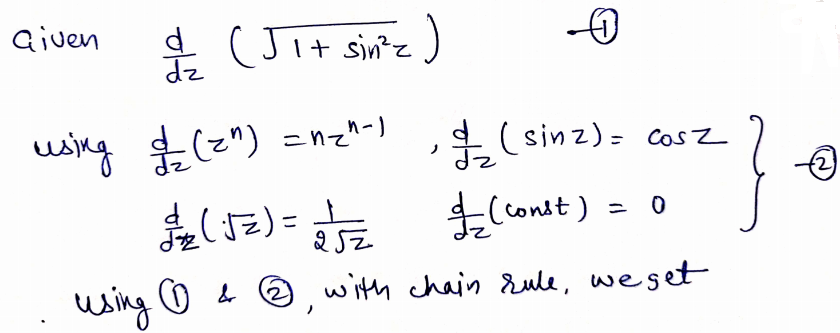 Given d/dz (√(1 + sin²z)) —①
using d/dz (zⁿ) = nzⁿ⁻¹ , d/dz (sin z) = cos z
d/dz (√z) = 1/(2√z) d/dz (const) = 0 } —②
. using ① & ②, with chain rule, we get